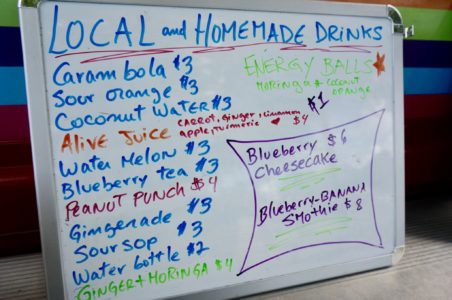 LOCAL and HOMEMADE DRINKS
Carambola $3
Sour orange $3
Coconut WATER $3
ALIVE JUICE CARROT, GINGER, cinnamon
apple, turmeric ♥ $4
Water Melon $3
Blueberry tea $3
PEANUT PUNCH $4
Gingerade $3
Soursop $3
Water bottle $2
GINGER + MORINGA $4
ENERGY BALLS
MORINGA + COCONUT
ORANGE
$1
Blueberry $6
Cheesecake
Blueberry-BANANA
SMothie $8